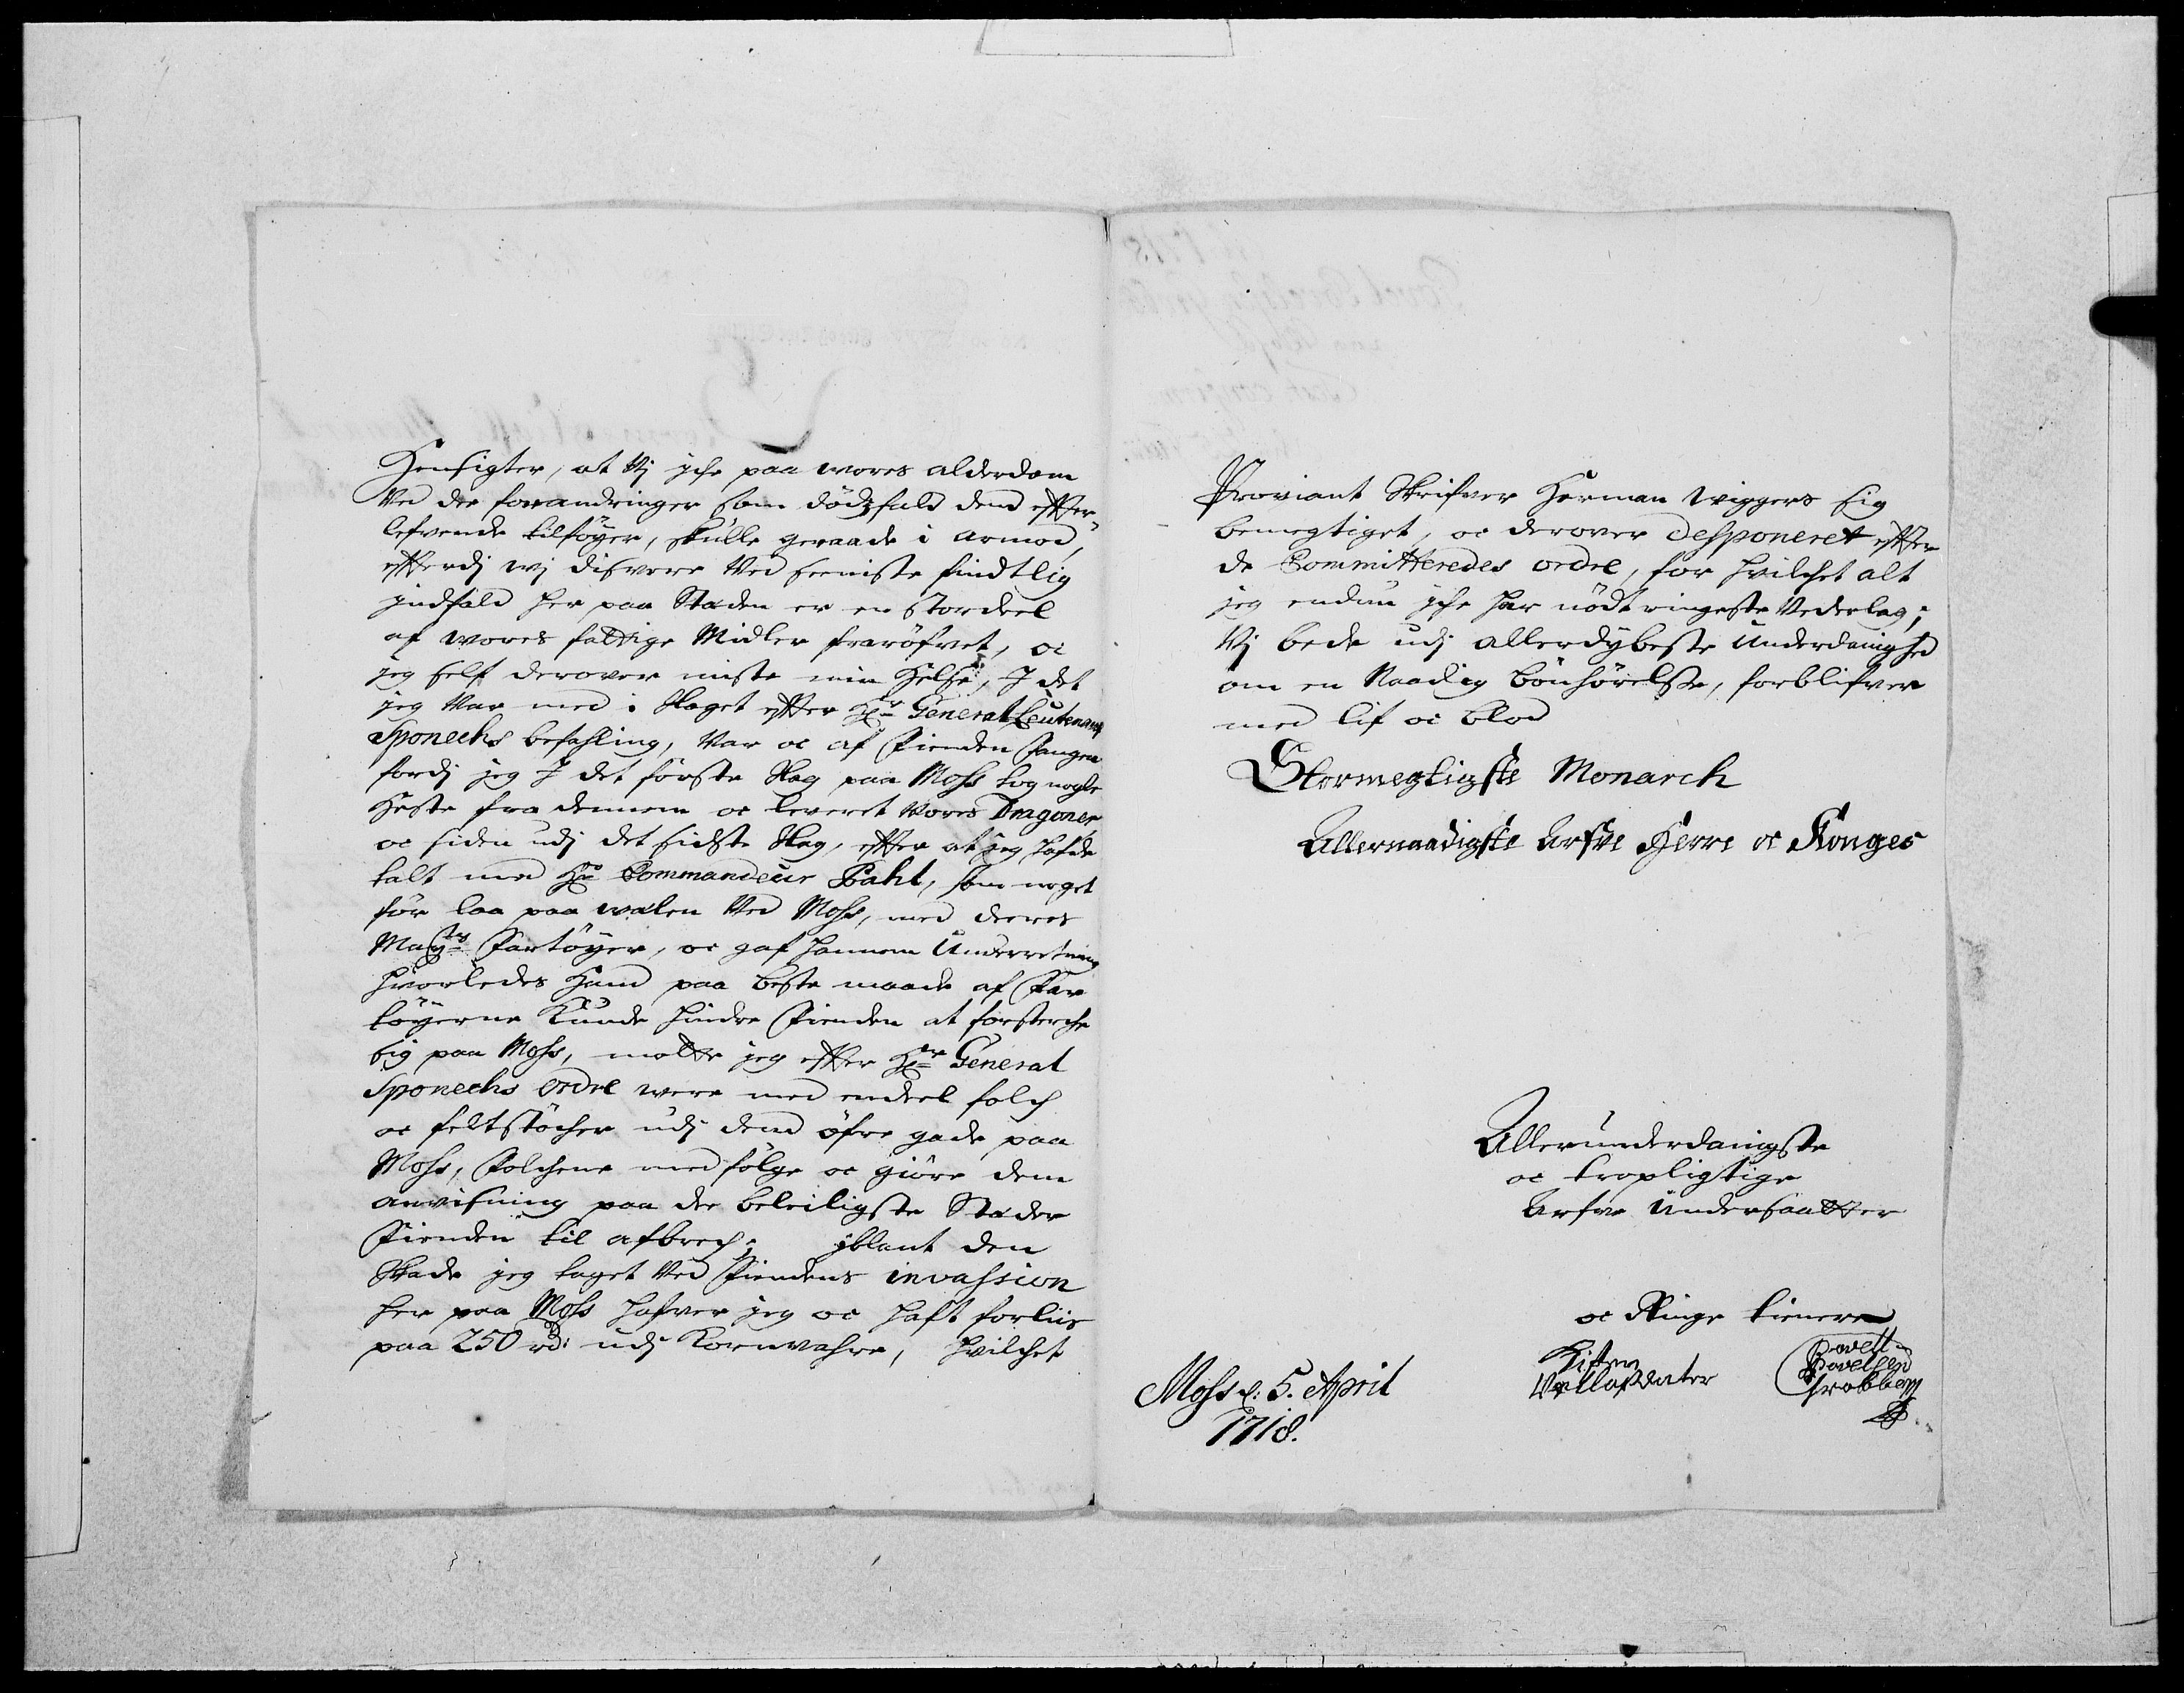 Hensigter, at Vj iche paa wores alderdom
Ved de forandringer som dödzfald dend effter¬
lefvende tilföyer, skulle geraade i armod,
efftterdj wj dissvere Ved seeniste findtlig
jndfald her paa Staden er en stordeel
af wores fattige Midler fraröfvet, oc
jeg self derover miste min Helse, J det
jeg Var med i Slaget effter Hr General Leutenant
Sponechs befahling, Var oc af Fienden fangen
fordj jeg J det förste Slag paa Moss tog nogle
Heste fra dennem oc leveret Vores Dragoner
oc siden udj det sidste Slag, effter at jeg hafde
talt med Hr Commandeur Paht, som noget
för laa paa walen Ved Moss, med deeres
Maÿts Fartöyer, oc gaf hannem Underretning
hvorledes Hand paa beste maade af Far
töyerne Kunde hindre Fienden at forsterche
sig paa Moss, motte jeg effter Hr General
Sponechs ordre were med endeel folch
oc feltstöcher udj dend öfre gade paa
Moss, Folchene medfölge oc giöre dem
anvisning paa de beleiligste Stæder
Fienden til afbrech; jblant den
Skade jeg taget Ved Fiendens invassion
her paa Moss hafver jeg oc haft forliis
paa 250 rd: udj Kornvahre, hvilchet
Proviant Skrifver Herman Wiggers sig
bemegtiget, oc derover desponeret effter
de Committeredes ordre, for hvilchet alt
jeg endnu iche har nödt ringeste Vederlag;
Vj bede udj allerdybeste Underdanighed
om en Naadig bönhörelse, forblifver
med lif oc blod
Stormegtigste Monarch
Allernaadigste Arfve Herre oc Konges
Allerunderdanigste
oc tropligtige
Arfve Undersaatter
oc Ringe tienere
Kisten
Vellafsdater
Povell
Povelsen
Grabberg
Moss d: 5. April
1718.